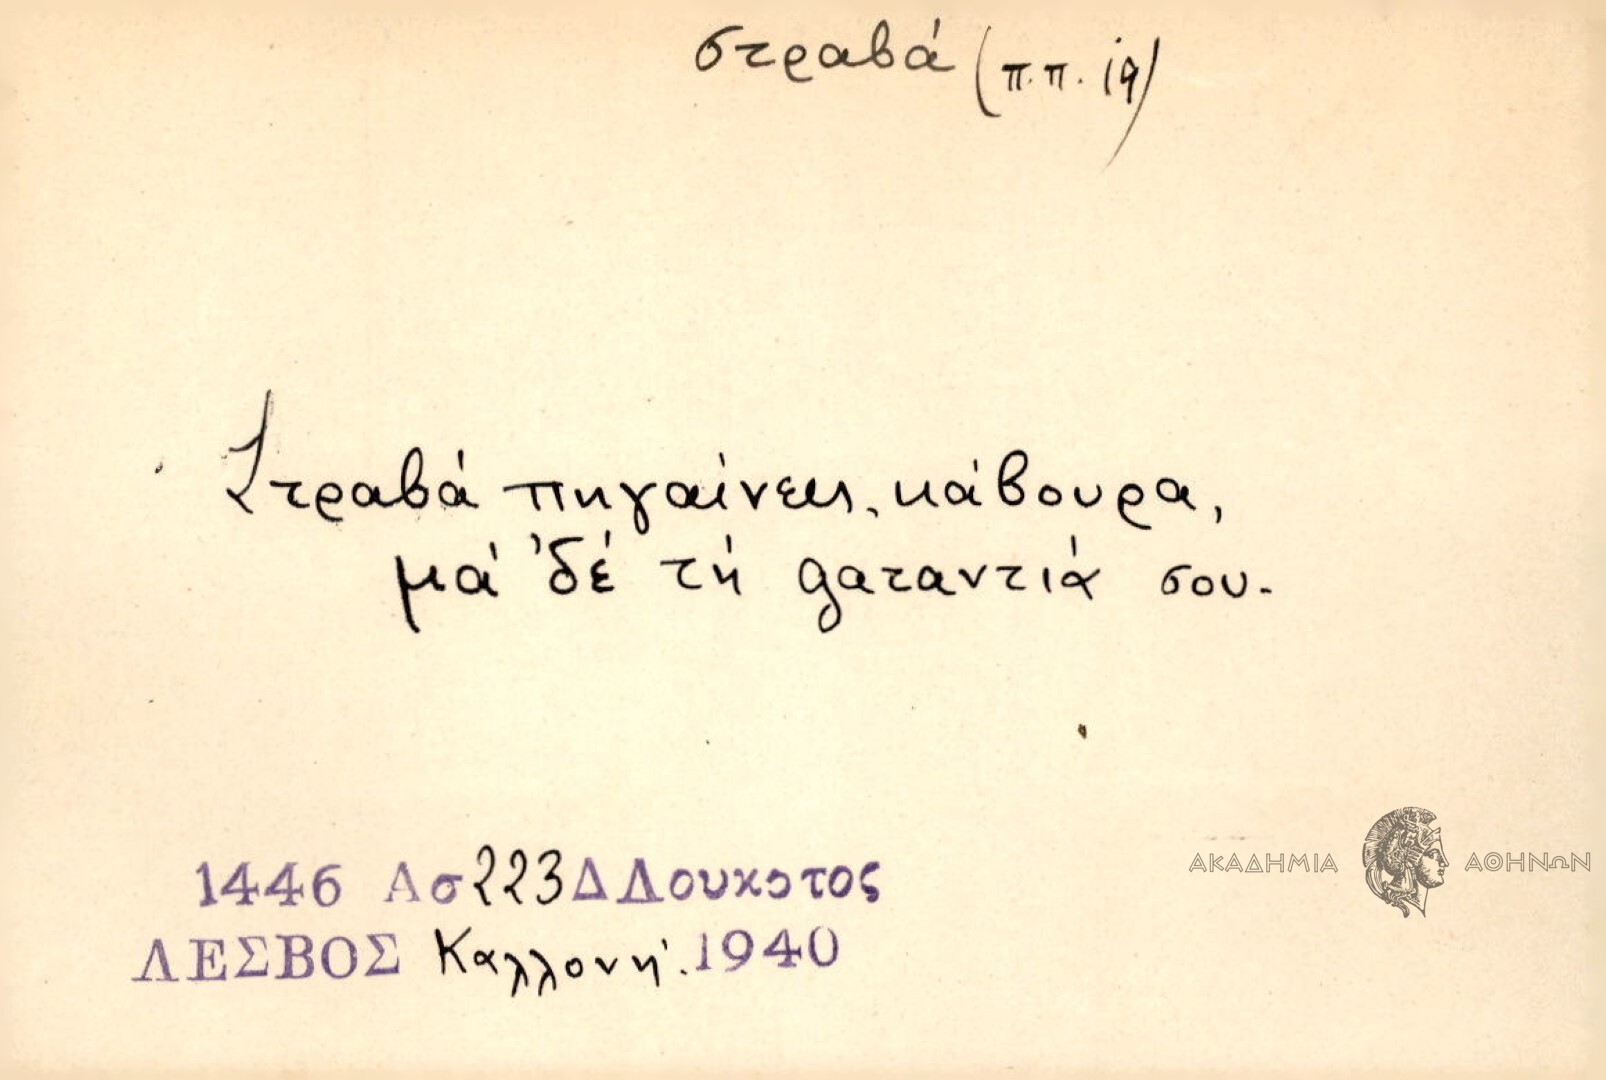 στραβά (π.π. 19)
Στραβά πηγαίνεις, κάβουρα,
μά 'δέ τή φαταντιά σου.
1446 Ασ 223 Δ Λουκοτος
ΛΕΣΒΟΣ Καλλονή. 1940
ΑΚΑΔΗΜΙΑ ΑΘΗΝΩΝ